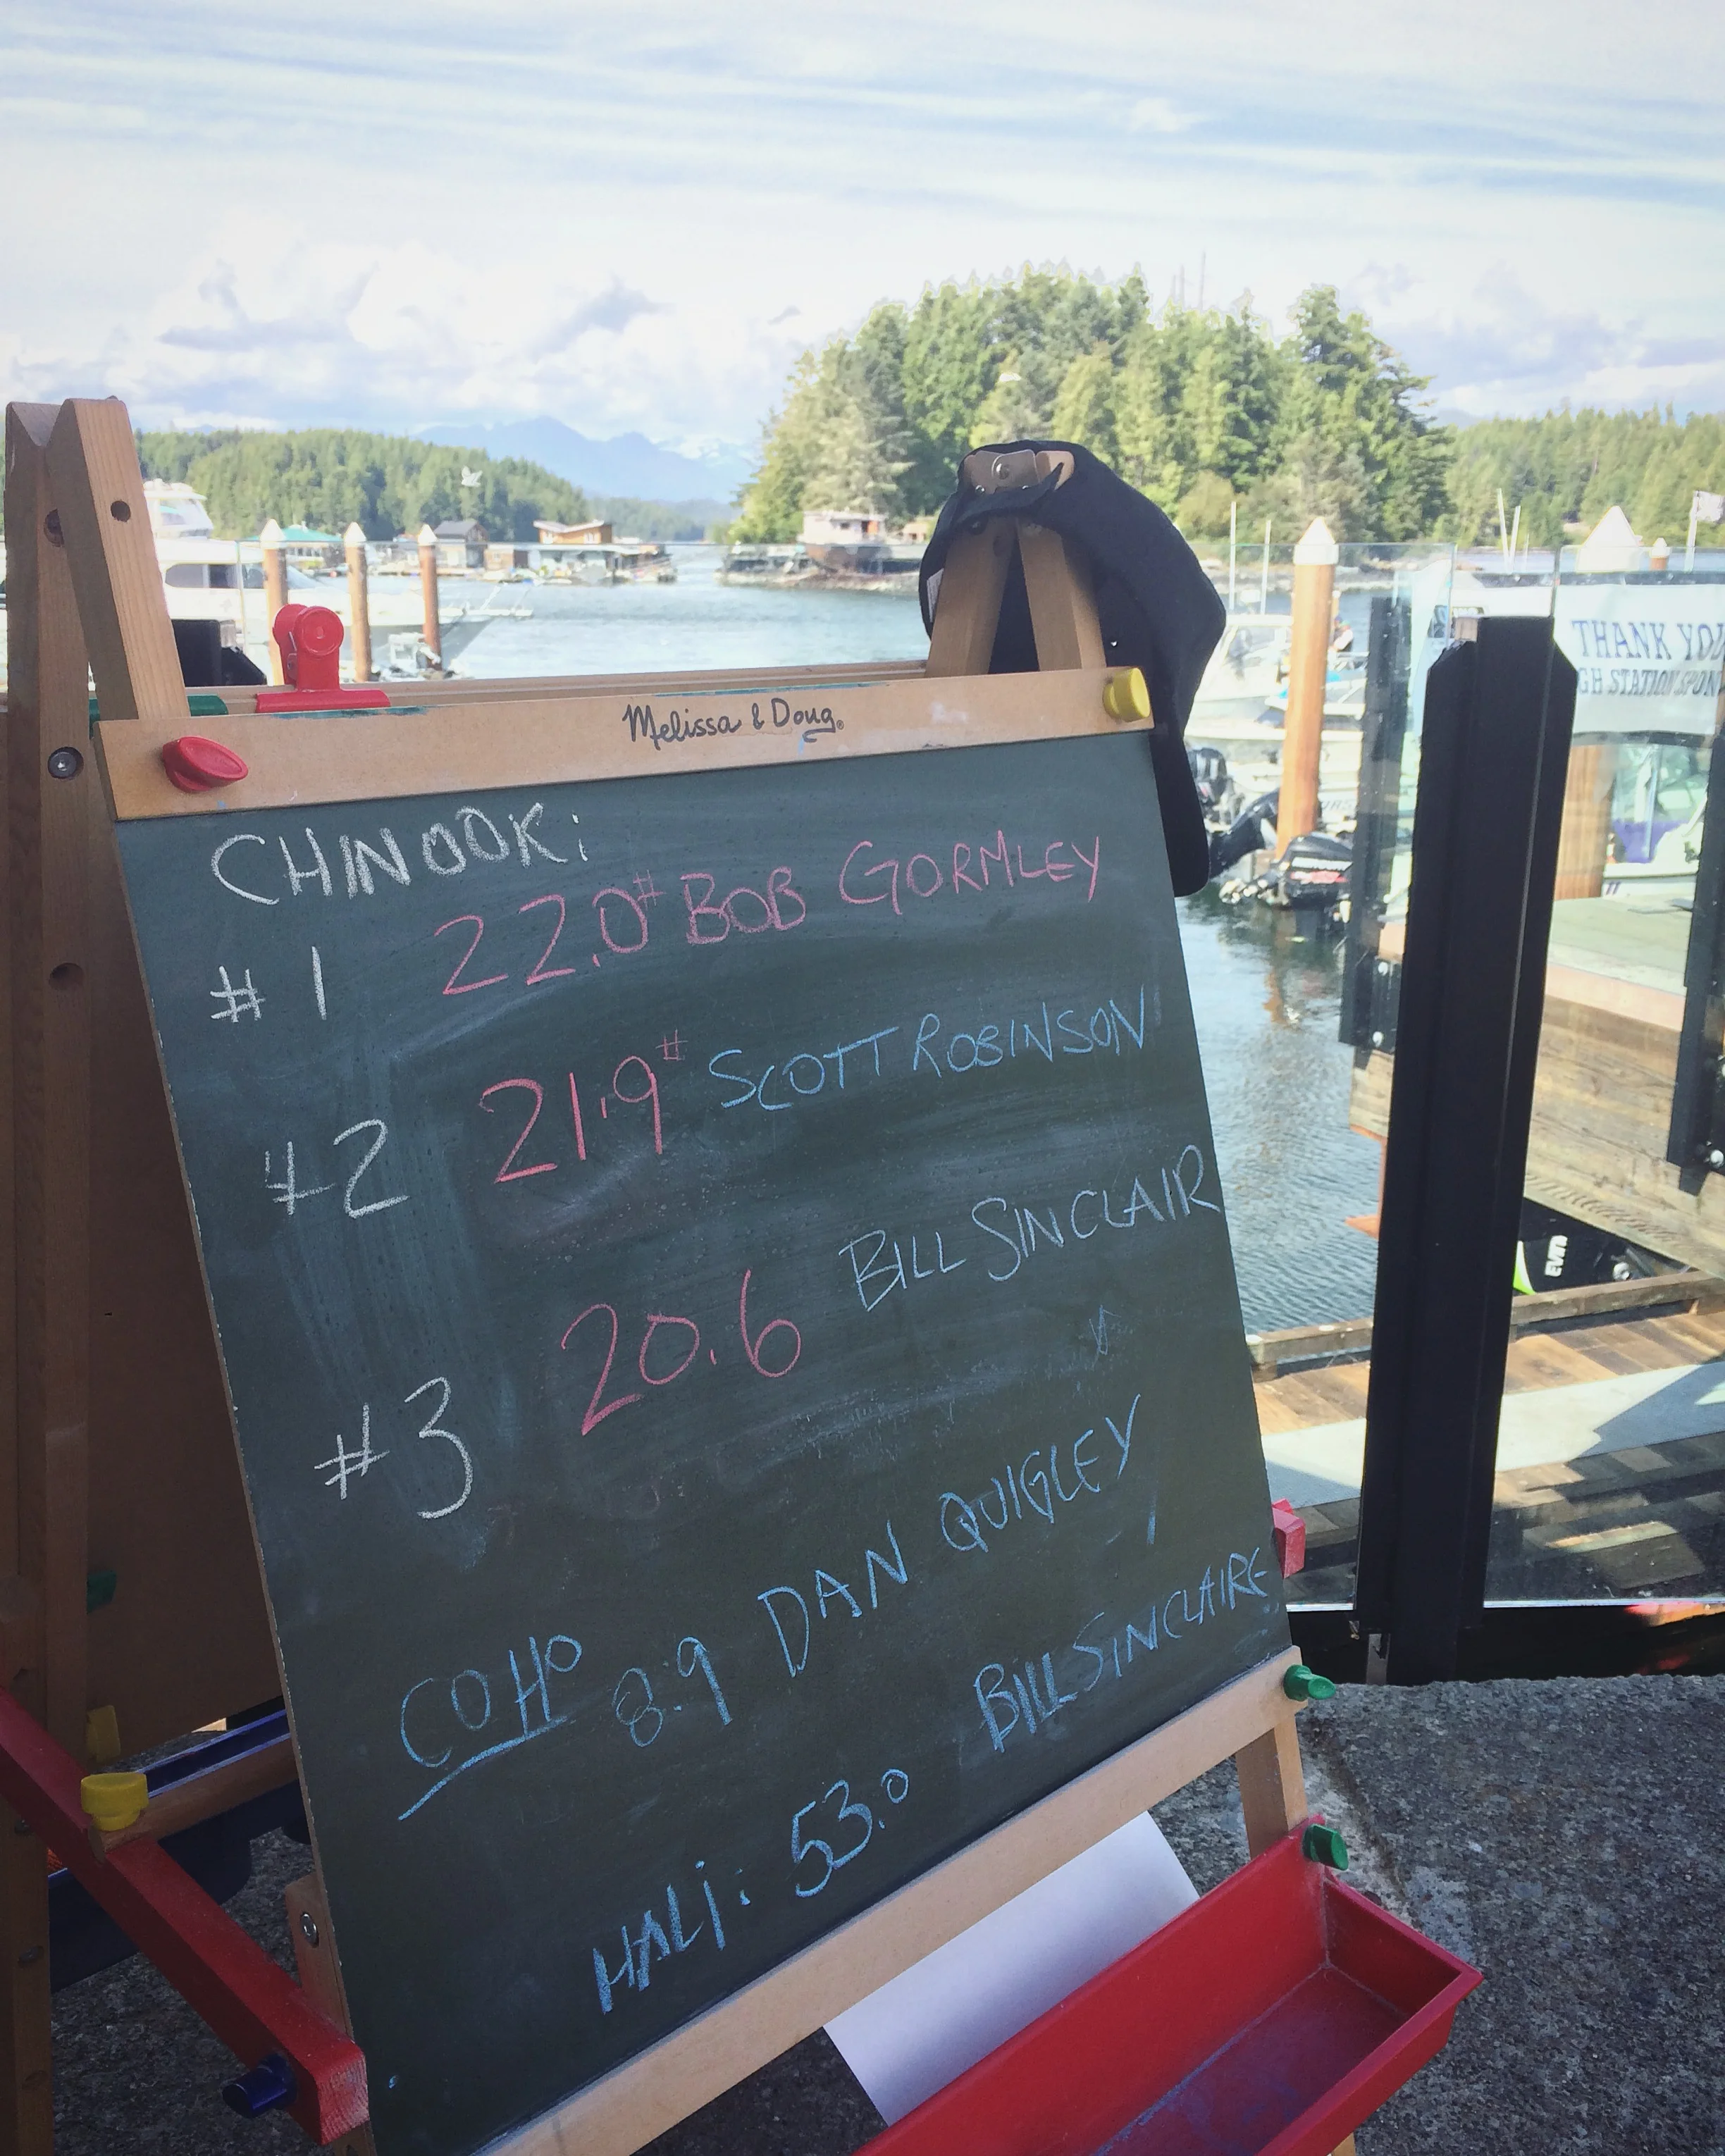 Melissa & Doug®
CHINOOK:
#1 22.0# BOB GORMLEY
#2 21.9# SCOTT ROBINSON
#3 20.6 BILL SINCLAIR
COHO 8.9 DAN QUIGLEY
HALI: 53.0 BILL SINCLAIRE
THANK YOU
GH STATION SPON
EVIN